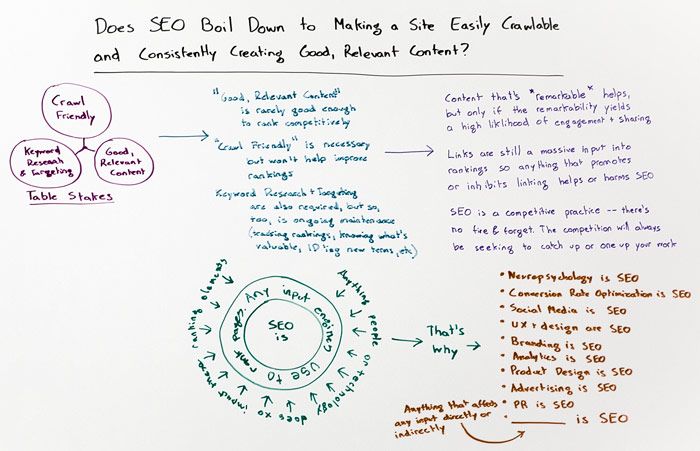 Does SEO Boil Down to Making a Site Easily Crawlable
and Consistently Creating Good, Relevant Content?
Crawl
Friendly
Keyword
Research
& Targeting
Good,
Relevant
Content
Table Stakes
"Good, Relevant Content"
is rarely good enough
to rank competitively
"Crawl Friendly" is necessary
but won't help improve
rankings
Keyword Research + Targeting
are also required, but so,
too, is ongoing maintenance
(tracking rankings, knowing what's
valuable, ID'ing new terms, etc)
Content that's *remarkable* helps,
but only if the remarkability yields
a high liklihood of engagement + sharing
Links are still a massive input into
rankings so anything that promotes
or inhibits linking helps or harms SEO
SEO is a competitive practice -- there's
no fire & forget. The competition will always
be seeking to catch up or one up your work
SEO
is
Any input engines
use to rank pages.
Anything people or technology
does to impact these ranking elements
That's
why
• Neuropsychology is SEO
• Conversion Rate Optimization is SEO
• Social Media is SEO
• UX + design are SEO
• Branding is SEO
• Analytics is SEO
• Product Design is SEO
• Advertising is SEO
• PR is SEO
• ______ is SEO
Anything that affects
any input directly or
indirectly